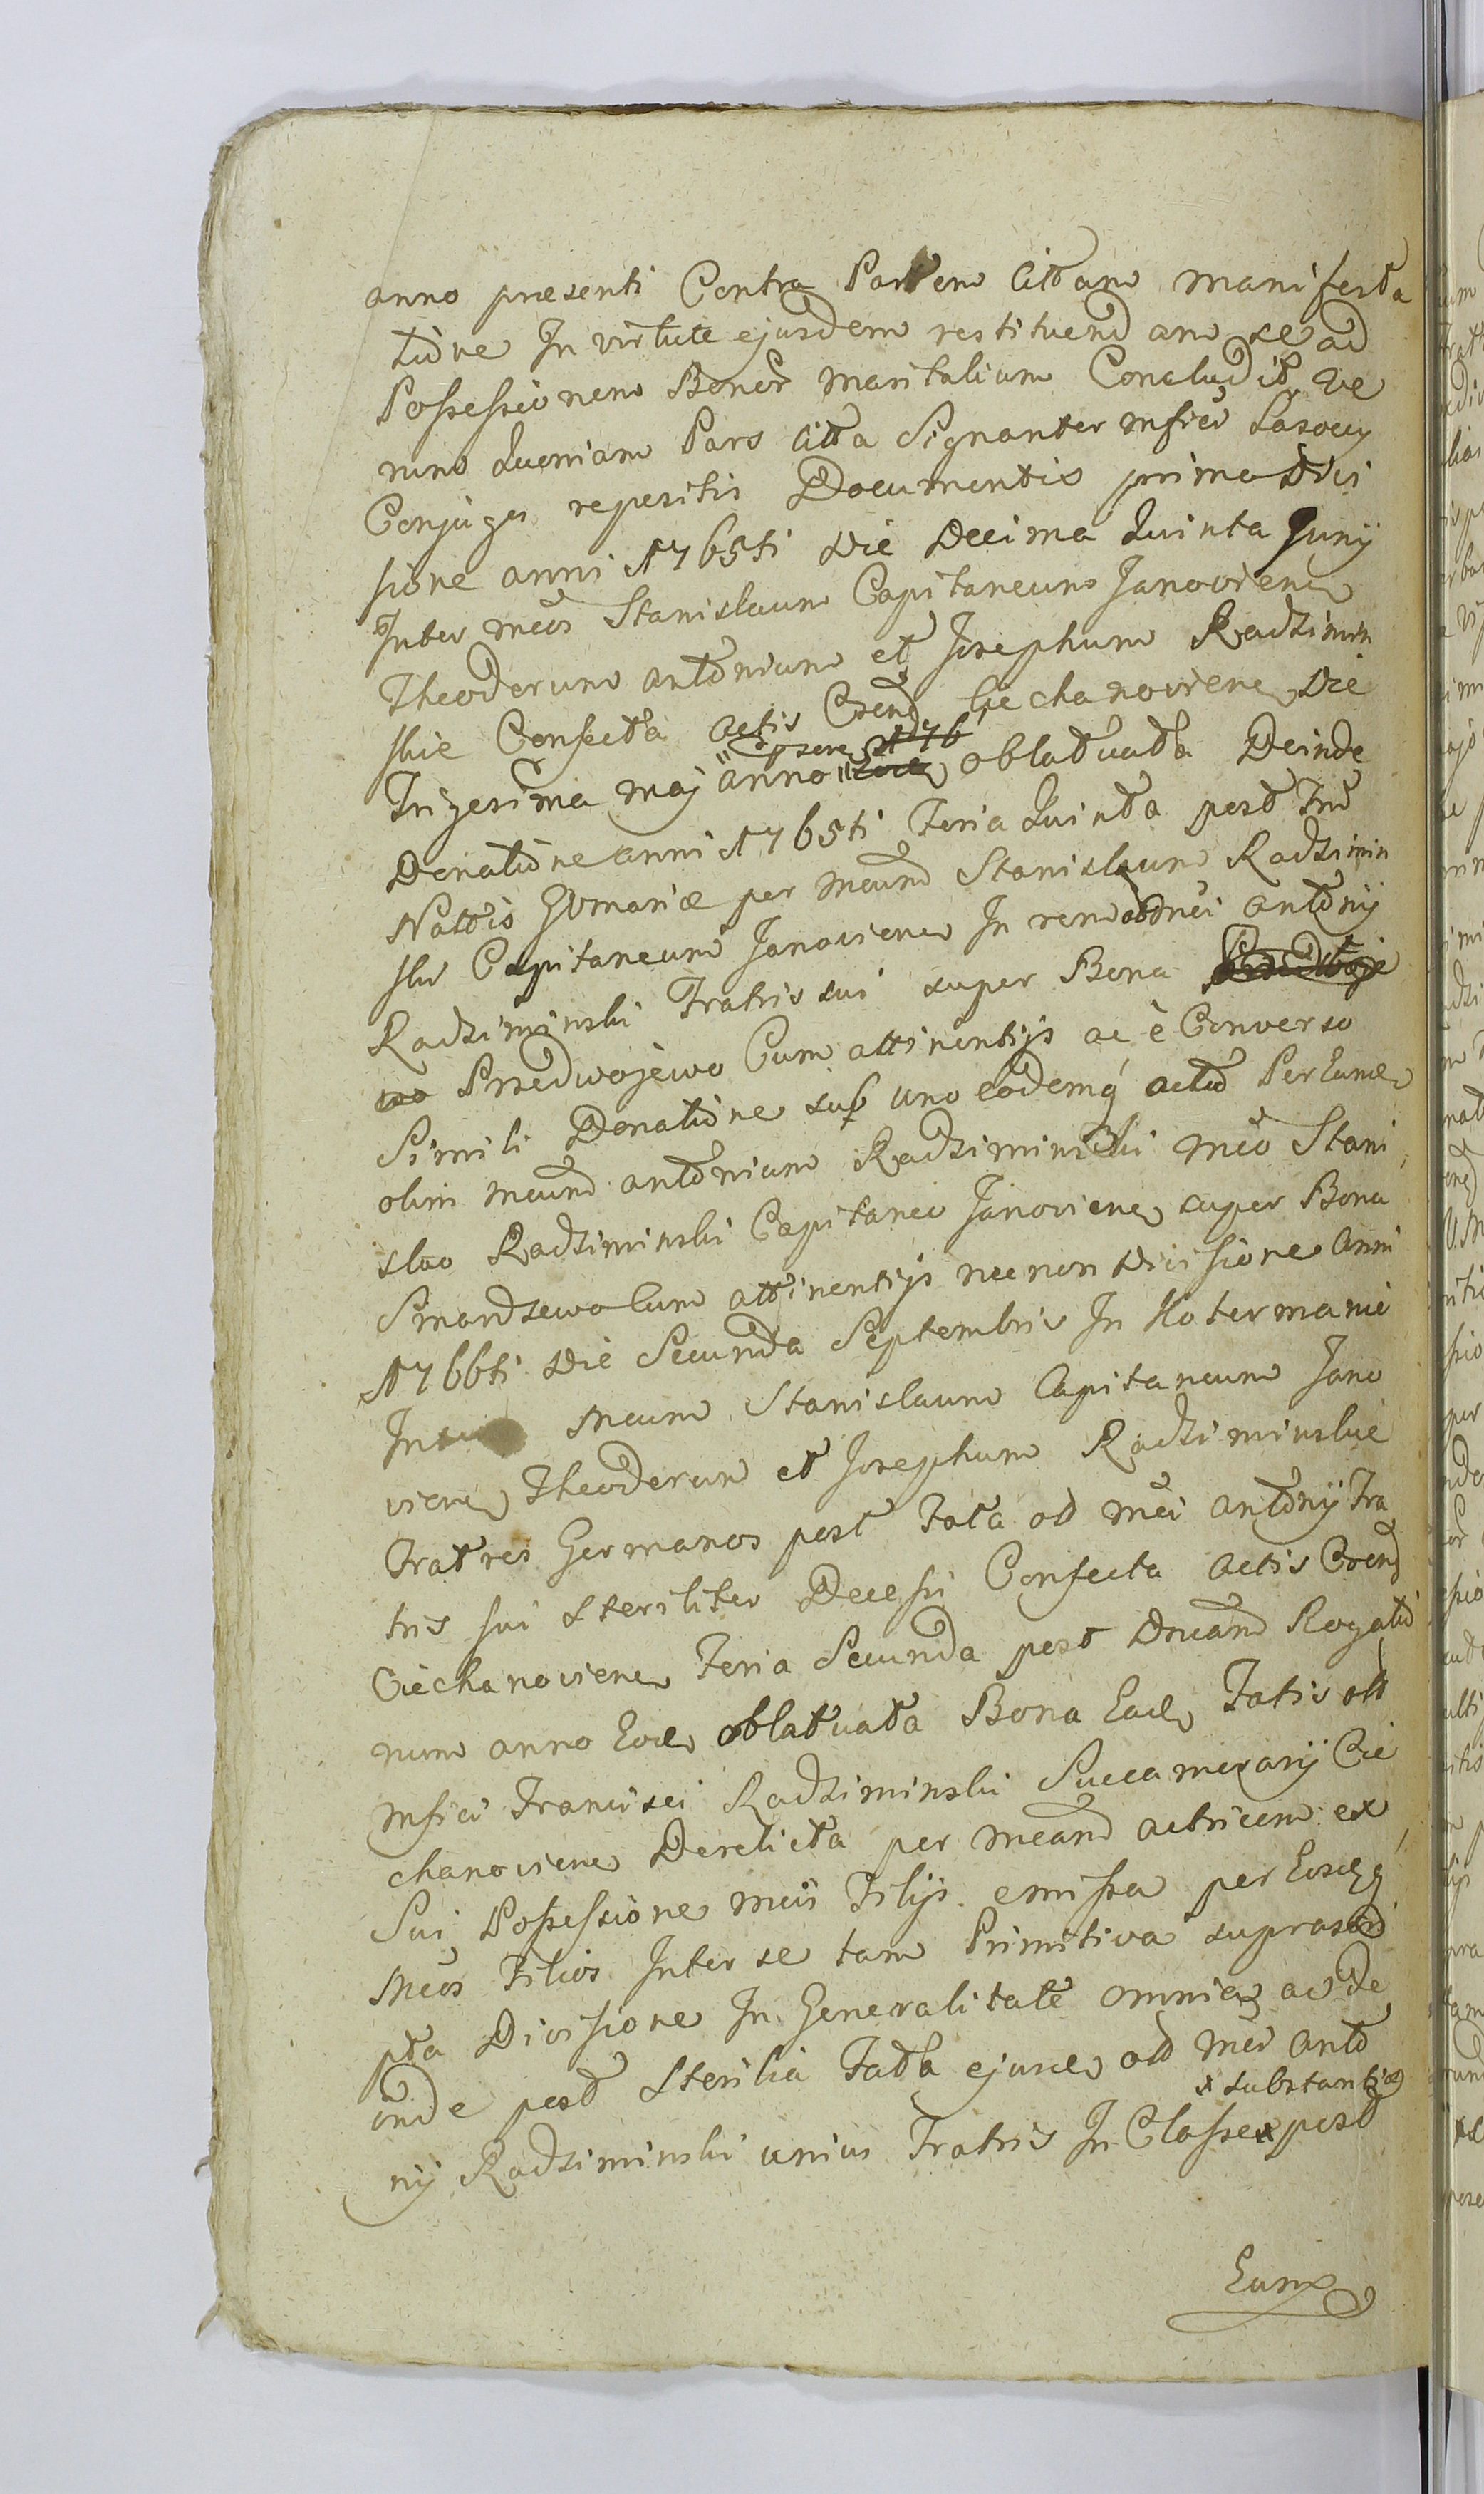 anno præsenti Contra Partem Cittam manifesta
tione In virtute ejusdem restituend am se ad
Possessionem Bonor maritalium Concludit, ve
rum Quoniam Pars Citta Signanter mfici Lasoccy
Conjuges repositis Documentis prima Divi
sione anni 1765ti Die Decima Quinta Junij
Inter mcos Stanislaum Capitaneum Janoviens
Theodorum antonium et Josephum Radzimin
skie Confecta actis Crend Ciechanoviens Die
Trigesima maj anno oblatuata Deinde
Donatione anni 1765ti Feria Quinta post Fm
Nattis GVmariæ per mcum Stanislaum Radzimin
ski Capitaneum Janoviens In rem ol mci antonij
Radziminski Fratris sui super Bona
wo Przedwojewo Cum attinentijs ac è Converso
Simili Donatione sub uno eodemq actu Per Eunde
olim mcum antonium Radziminski mco Stani
slao Radziminski Capitaneo Janoviens super Bona
Smardzewo Cum attinentijs necnon Divisione anni
1766ti Die Secunda Septembris In Kotermanie
Inter mcum Stanislaum Capitaneum Jano
viens Theodorum et Josephum Radziminskie
Fratres Germanos post Fata ol mci antonij Fra
tris sui Steriliter Decessi Confecta actis Crend
Ciechanoviens Feria Secunda post Dncam Rogatio
num anno Eode oblatuata Bona Eade Fatis ol
mfici Francisci Radziminski Succamerarij Cie
chanoviens Derelicta per mcam actricem ex
Sui Possessione mcis Filijs emissa per Eosdeq
mcos Filios Inter se tam Primitiva suprascri
pta Divisione In Generalitate omnia ac De
inde post Sterilia Fata ejusde ol mci anto
x substantia
nij Radziminski unius Fratris In Classe x post
Eunde